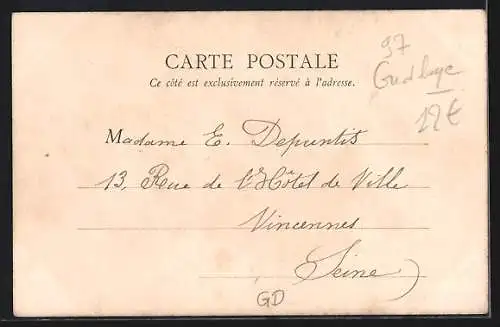 97
CARTE POSTALE
Ce côté est exclusivement réservé à l'adresse.
12€
Madame E. Depuntis
13, Rue de l'Hôtel de Ville
Vincennes
Seine
GD